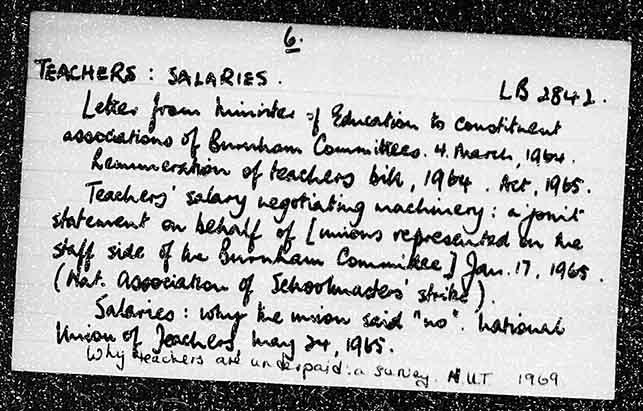 6.
TEACHERS: SALARIES. LB 2842.
Letter from Minister of Education to constituent
associations of Burnham Committees. 4 March, 1964.
Remuneration of teachers bill, 1964. Act, 1965.
Teachers' salary negotiating machinery: a joint
statement on behalf of [unions represented on the
staff side of the Burnham Committee] Jan. 17, 1965
(Nat. Association of Schoolmasters' strike).
Salaries: why the union said "no". National
Union of Teachers, May 24, 1965.
Why teachers are underpaid: a survey. N.U.T 1969